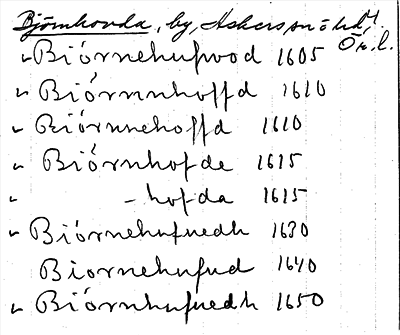 Björnhovda, by, Askers sn ö hd
Ör. l.
" Biörnehufwod 1605
" Biórnnhoffd 1610
" Biórnnehoffd 1610
" Biórnhofde 1615
" - hofda 1615
" Biórnehufuedh 1630
Biornehufud 1640
" Biórnhufuedh 1650